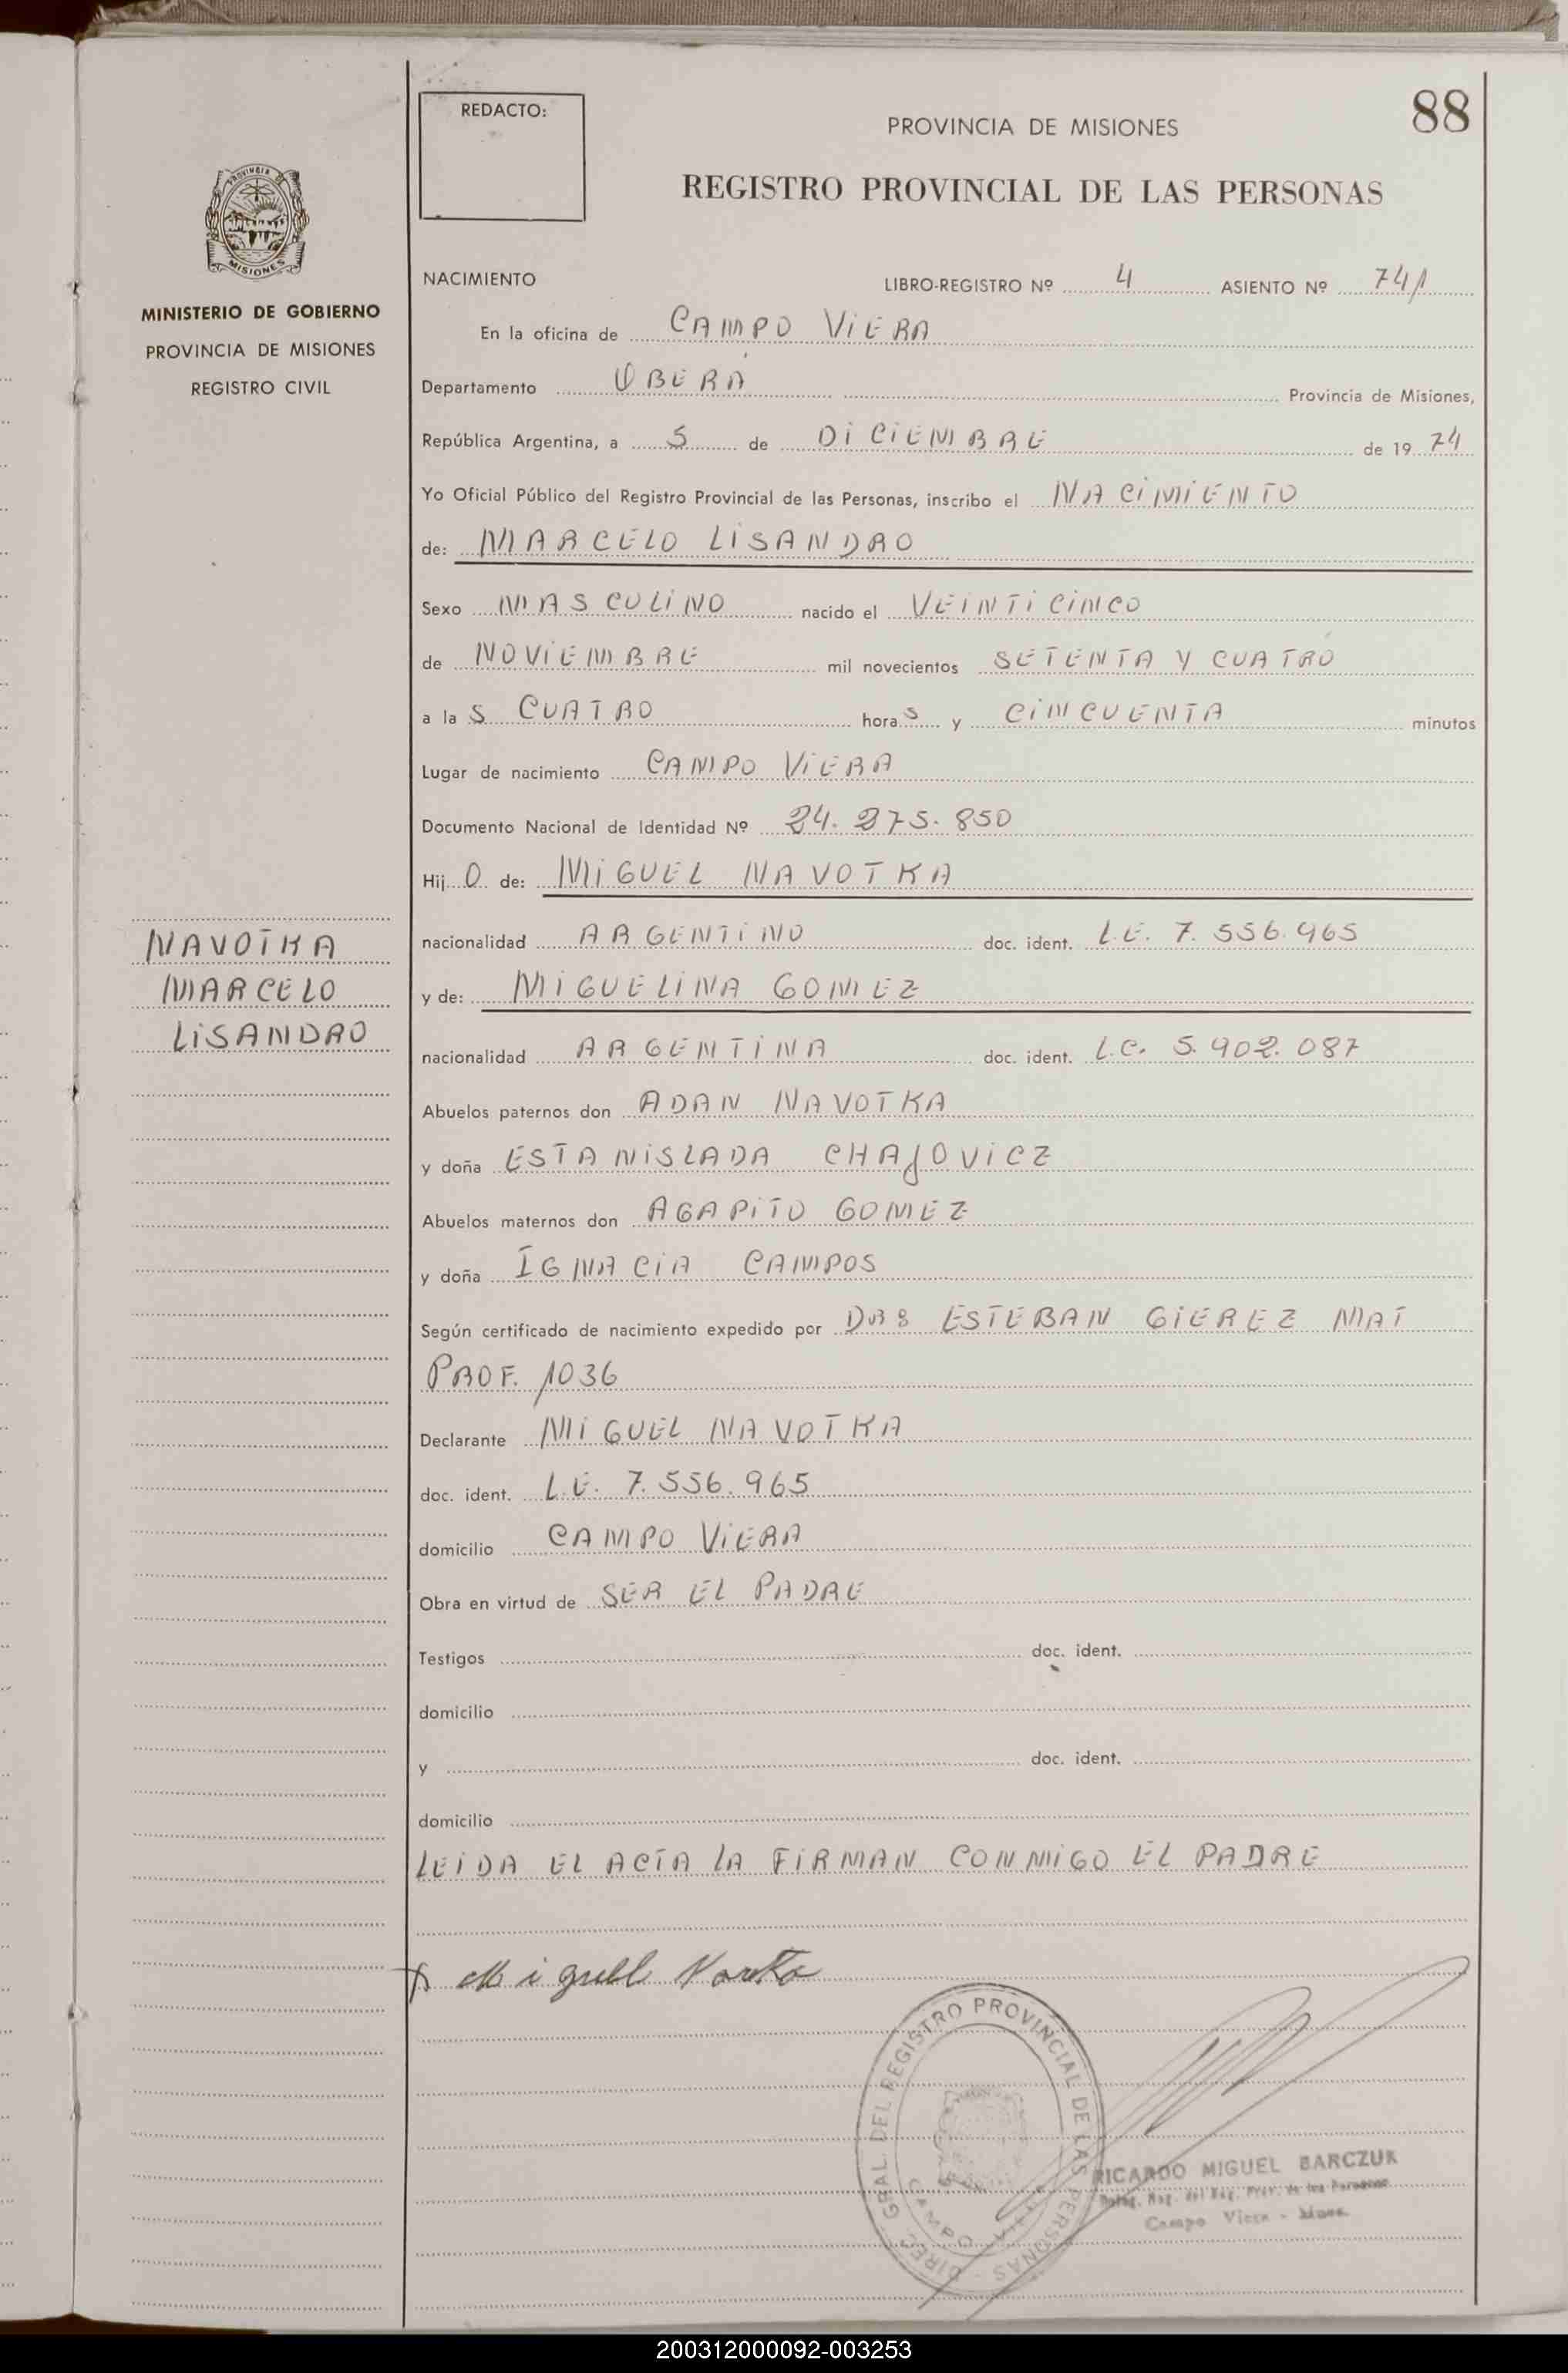 88
REDACTO:
PROVINCIA DE MISIONES
REGISTRO PROVINCIAL DE LAS PERSONAS
PROVINCIA DE
MISIONES
MINISTERIO DE GOBIERNO
PROVINCIA DE MISIONES
REGISTRO CIVIL
NACIMIENTO LIBRO-REGISTRO Nº 4 ASIENTO Nº 741
En la oficina de CAMPO ViERA
Departamento OBERA Provincia de Misiones,
República Argentina, a 5 de DiCiEMBRE de 19 74
Yo Oficial Público del Registro Provincial de las Personas, inscribo el NACiMiENTO
de: MARCELO LiSANDRO
Sexo MASCULiNO nacido el VEiNTiCiNCO
de NOViEMBRE mil novecientos SETENTA Y CUATRO
a la S CUATRO hora S y CiNCUENTA minutos
Lugar de nacimiento CAMPO ViERA
Documento Nacional de Identidad Nº 24.275.850
Hij O de: MiGUEL NAVOTKA
nacionalidad ARGENTiNO doc. ident. L.E. 7.556.965
y de: MiGUELiNA GOMEZ
nacionalidad ARGENTiNA doc. ident. L.C. 5.902.087
Abuelos paternos don ADAN NAVOTKA
y doña ESTANiSLADA CHAJOViCZ
Abuelos maternos don AGAPiTO GOMEZ
y doña IGNACiA CAMPOS
Según certificado de nacimiento expedido por ESTEBAN GiEREZ MAT
PROF. 1036
Declarante MiGUEL NAVOTKA
doc. ident. L.E. 7.556.965
domicilio CAMPO ViERA
Obra en virtud de SER EL PADRE
Testigos doc. ident.
domicilio
y doc. ident.
domicilio
LEiDA EL ACTA LA FiRMAN CONMiGO EL PADRE
NAVOTKA
MARCELO
LiSANDRO
Miguell
DIREC. GRAL. DEL REGISTRO PROVINCIAL DE LAS PERSONAS
CAMPO VIERA
RICARDO MIGUEL BARCZUK
Deleg. Reg. del Reg. Prov. de las Personas
Campo Viera - Mnes.
200312000092-003253